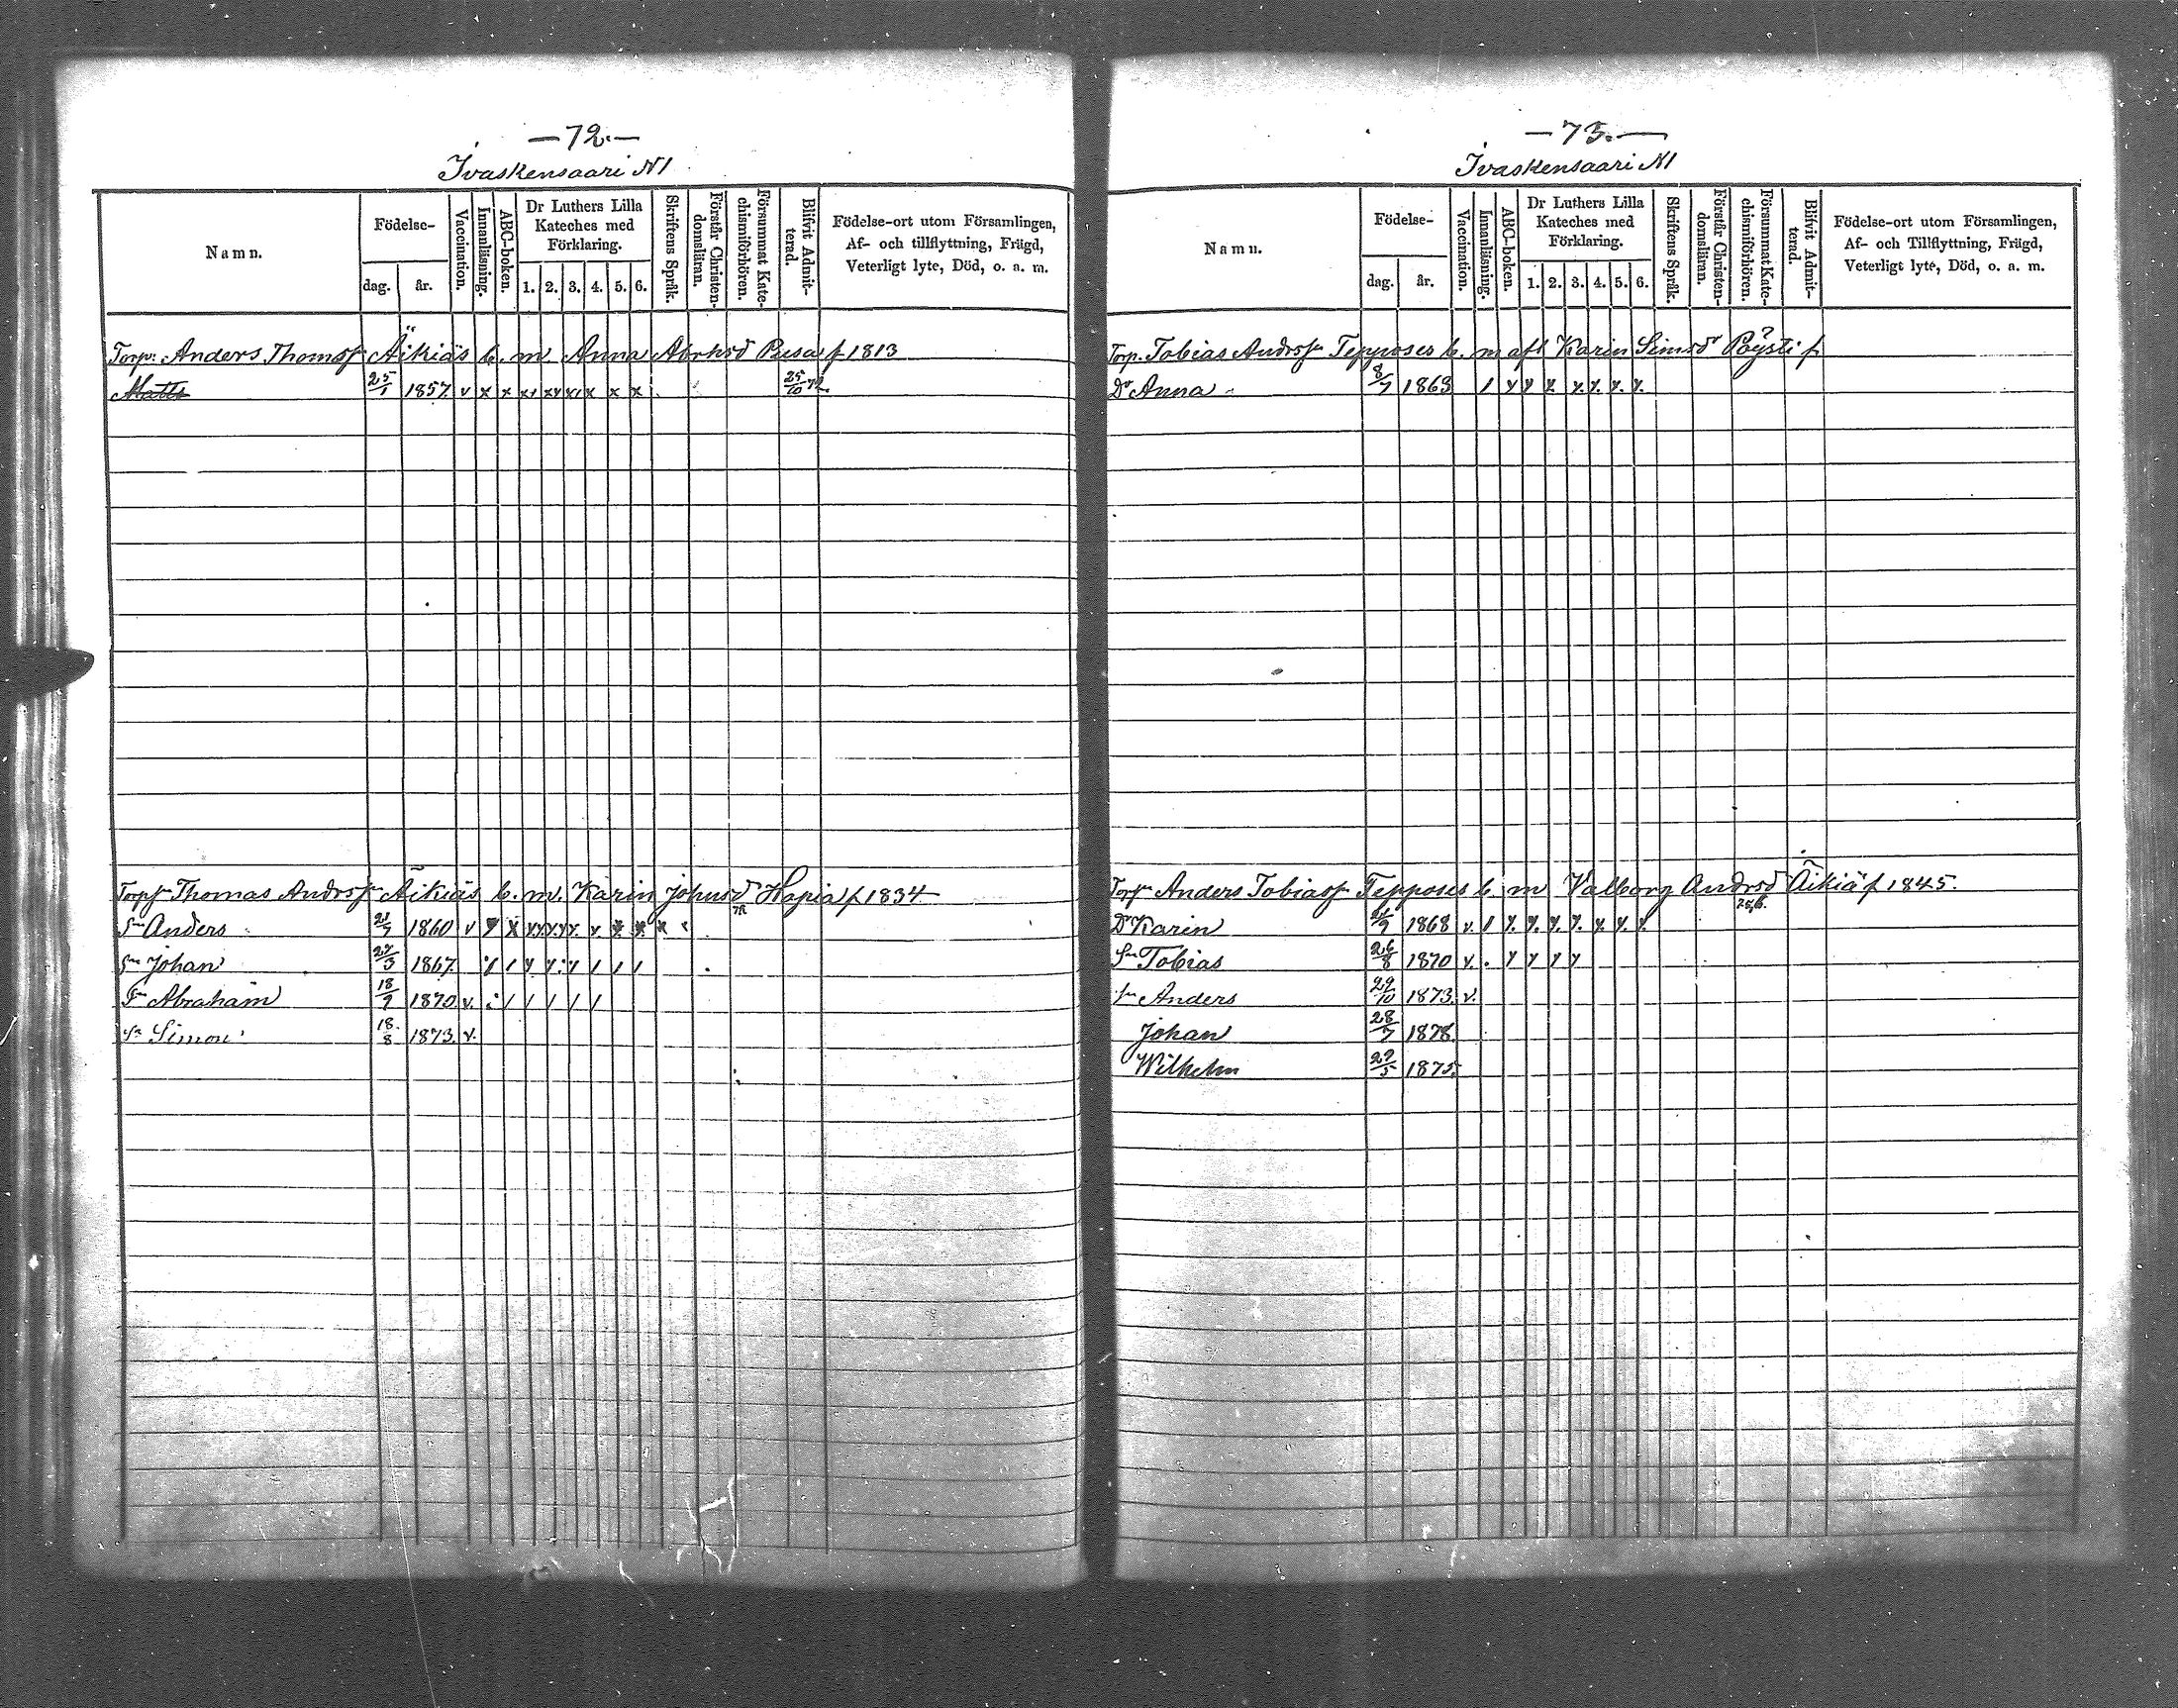 —72.—
Ivaskensaari N1
Namn.
Födelse-
dag.
år.
Vaccination.
Innanläsning.
ABC-boken.
Dr Luthers Lilla
Kateches med
Förklaring.
1. 2. 3. 4. 5. 6.
Skriftens Språk.
Förstår Christen-
domsläran.
Försummat Kate-
chismiförhören.
Blifvit Admit-
terad.
Födelse-ort utom Församlingen,
Af- och tillflyttning, Frägd,
Veterligt lyte, Död, o. a. m.
Torp: Anders Thomss: Äikiäs b. m. Anna Abrhsd Pusa f 1813
Matts 25/1 1857. v x x x x x x x x 25/10 72
Torp Thomas Andrsn Äikiäs b. m. Karin Johnsd Hapia f 1834
Sn Anders 21/7 1860 v
Sn Johan 1867.
Sn Abraham 18/9 1870 v. / / / / /
Sn Simon 18/8 1873 v.
—73.—
Ivaskensaari N1
Namn.
Födelse-
dag.
år.
Vaccination.
Innanläsning.
ABC-boken.
Dr Luthers Lilla
Kateches med
Förklaring.
1. 2. 3. 4. 5. 6.
Skriftens Språk.
Förstår Christen-
domsläran.
Försummat Kate-
chismiförhören.
Blifvit Admit-
terad.
Födelse-ort utom Församlingen,
Af- och Tillflyttning, Frägd,
Veterligt lyte, Död, o. a. m.
Torp. Tobias Andrsn Tepposes b. m afl Karin Simsdr Pöysti f
Dr Anna 8/7 1863
Torp Anders Tobiassn Tepposes b. m Valborg Andrsd Äikiä f 1845.
Dr Karin 1868 v.
Sn Tobias 26/8 1870 v.
Sn Anders 29/10 1873. v.
Johan 28/7 1878.
Wilhelm 29/5 1875.